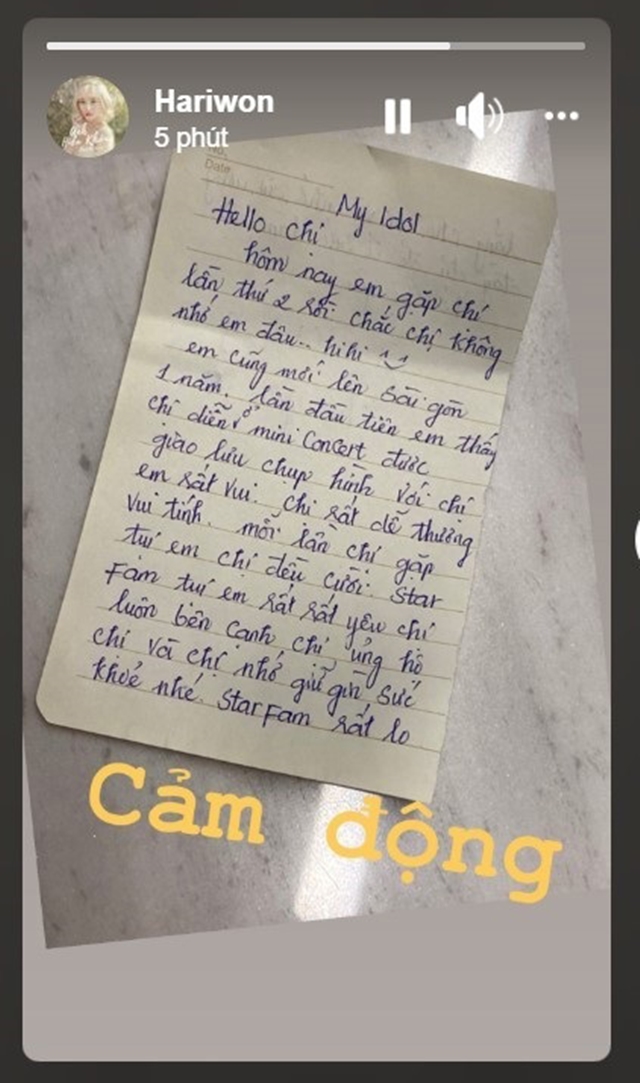 Hariwon
5 phút
Date
My Idol
Hello chị
hôm nay em gặp chị
lần thứ 2 rồi chắc chị không
nhớ em đâu.. hihi
em cũng mới lên Sài gòn
1 năm. lần đầu tiên em thấy
chị diễn ở mini Concert được
giao lưu chụp hình với chị
em rất vui. chị rất dễ thương
vui tính. mỗi lần chị gặp
tụi em chị đều cười. Star
Fam tụi em rất rất yêu chị
luôn bên cạnh chị ủng hộ
chị và chị nhớ giữ gìn sức
khoẻ nhé. StarFam rất lo
Cảm động